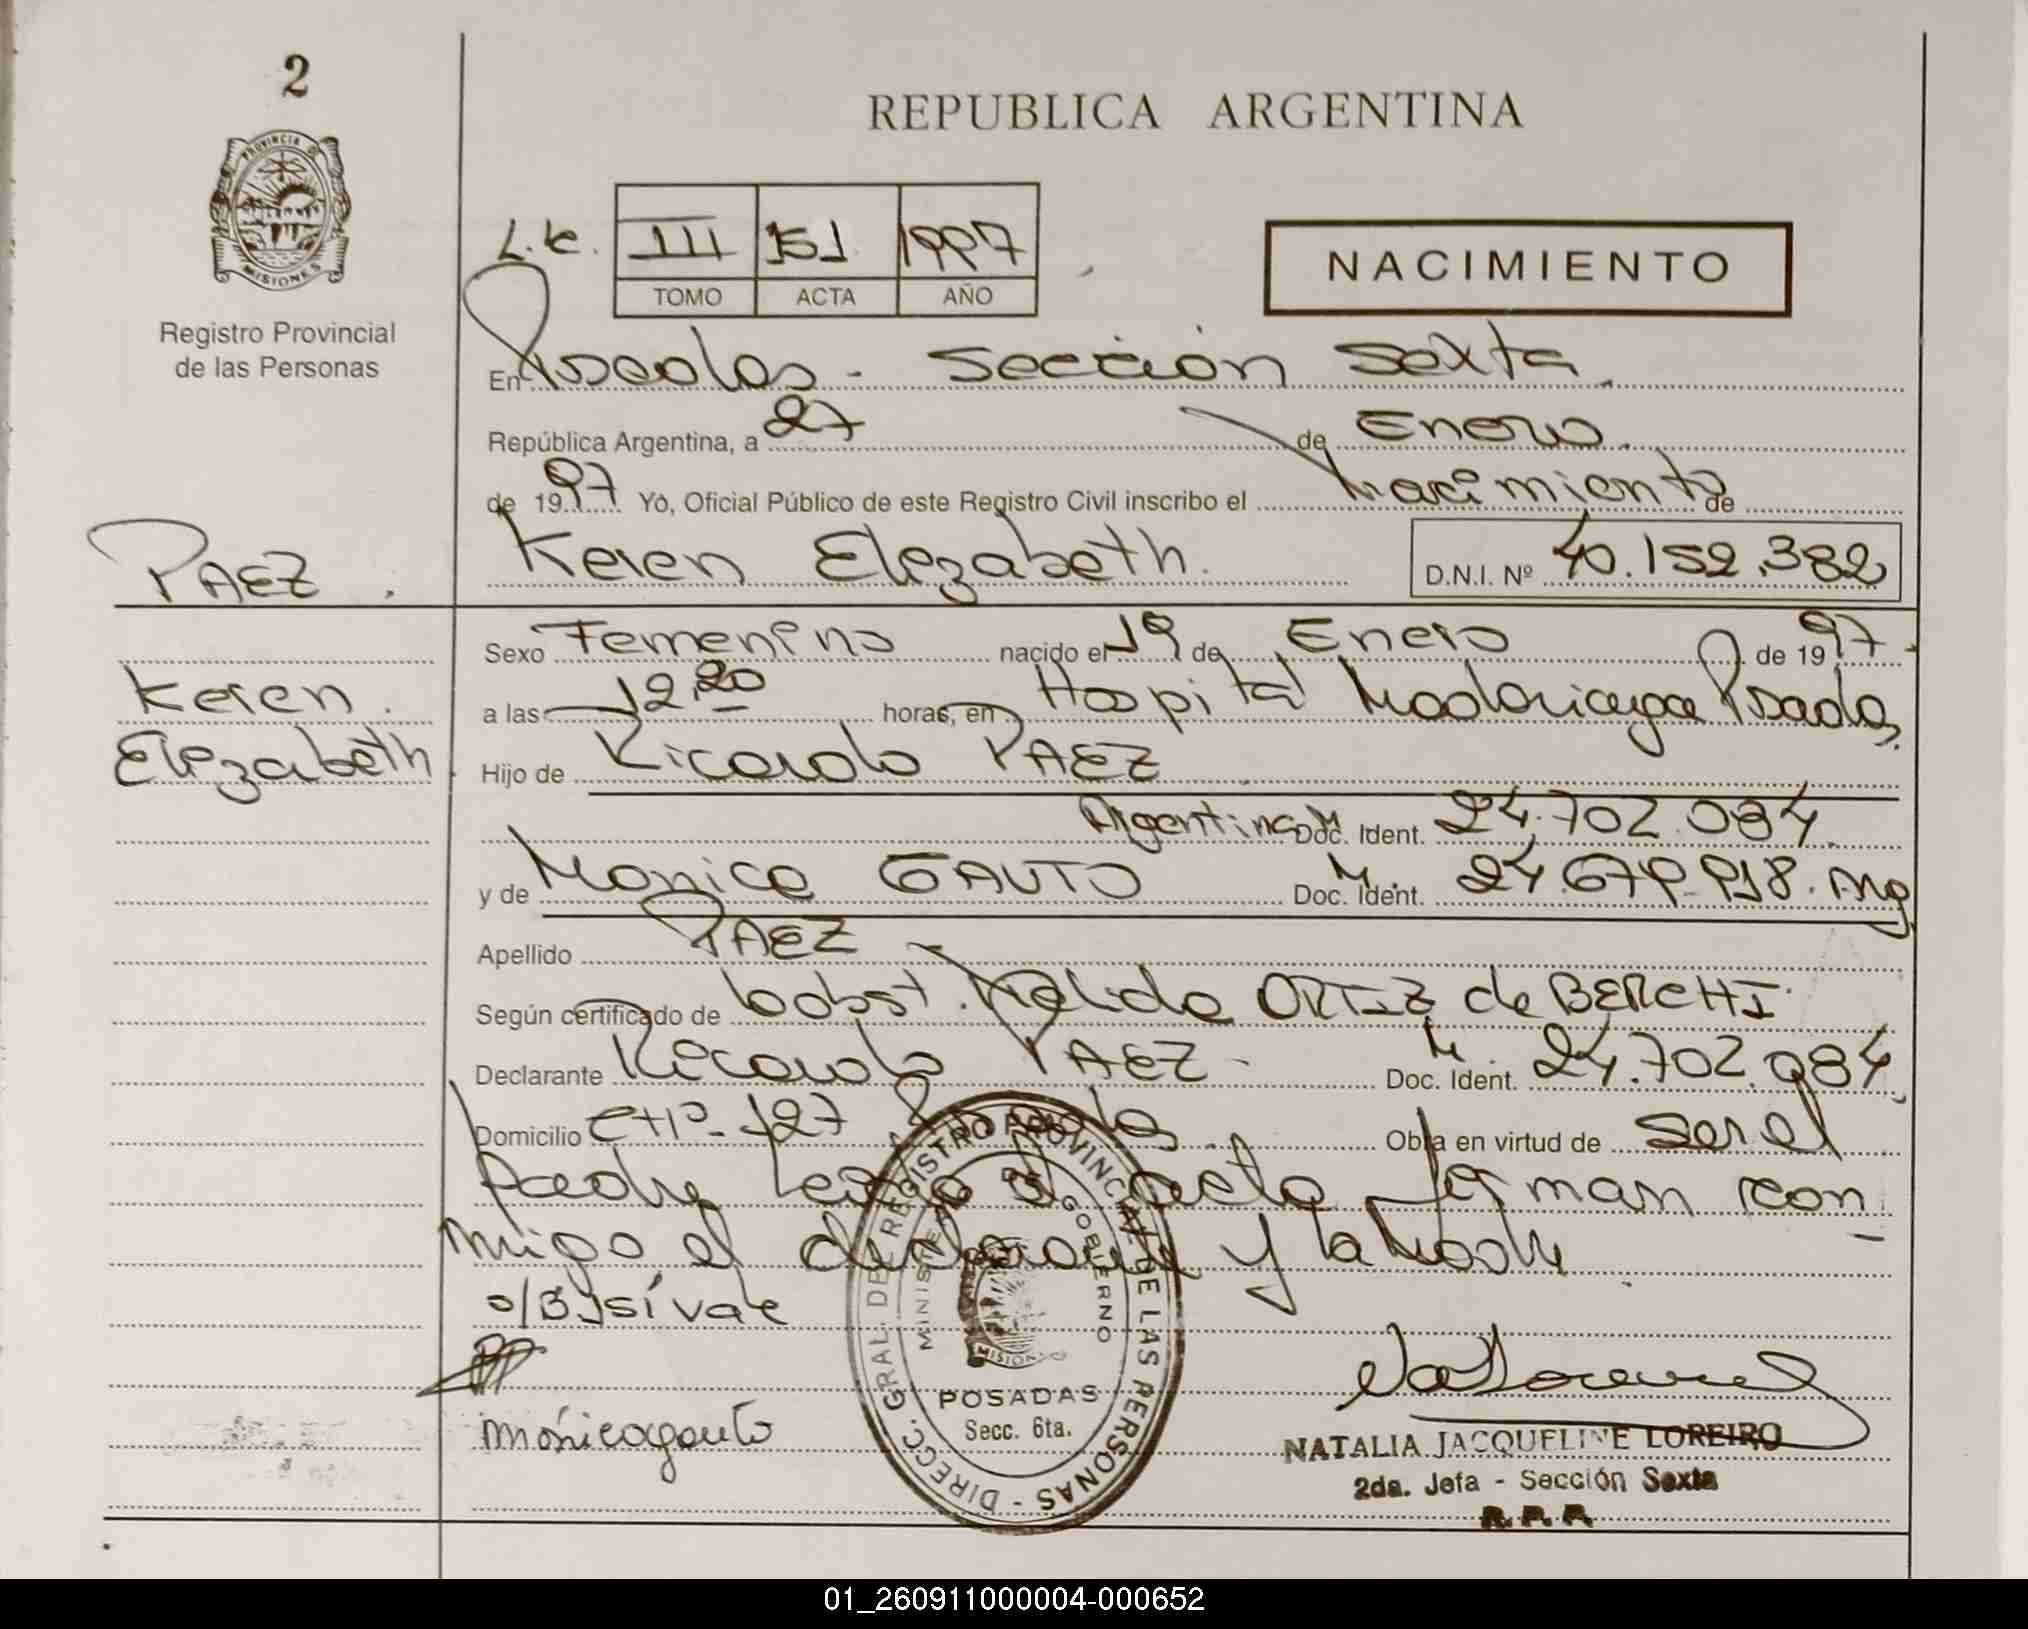 2
PROVINCIA DE
MISIONES
Registro Provincial
de las Personas
REPUBLICA ARGENTINA
III 151 1997
TOMO ACTA AÑO
NACIMIENTO
En Posadas - Sección Sexta
República Argentina, a 27 de Enero
de 1997 Yo, Oficial Público de este Registro Civil inscribo el Nacimiento de
PAEZ. Keren Elizabeth. D.N.I. Nº 40.152.382
Sexo Femenino nacido el 19 de Enero de 1997.
Keren
a las 12,20 horas, en Hospital Madariaga Posadas
Elizabeth
Hijo de Ricardo PAEZ
Argentino M. Doc. Ident. 24.702.084
y de Monica GAUTO M. Doc. Ident. 24.679.918. Arg
Apellido PAEZ
Según certificado de ORTIZ de BERCHI
Declarante Ricardo PAEZ M. Doc. Ident. 24.702.084
Domicilio 127 Obra en virtud de ser el
padre Leída el acta firman con
migo el declarante y la Madre
o/B, sí vale
mónica gauto
DIRECC. GRAL. DE REGISTRO PROVINCIAL DE LAS PERSONAS -
MINISTERIO DE GOBIERNO
MISIONES
POSADAS
Secc. 6ta.
NATALIA JACQUELINE LOREIRO
2da. Jefa - Sección Sexta
R.P.P.
01_260911000004-000652